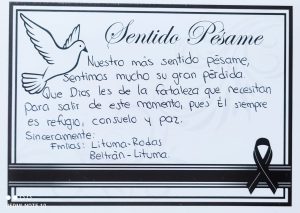 Sentido Pésame
Nuestro más sentido pésame,
Sentimos mucho su gran pérdida.
Que Dios les de la fortaleza que necesitan
para salir de este momento, pues Él siempre
es refugio, consuelo y paz.
Sinceramente:
Fmlias: Lituma-Rodas
Beltrán-Lituma.